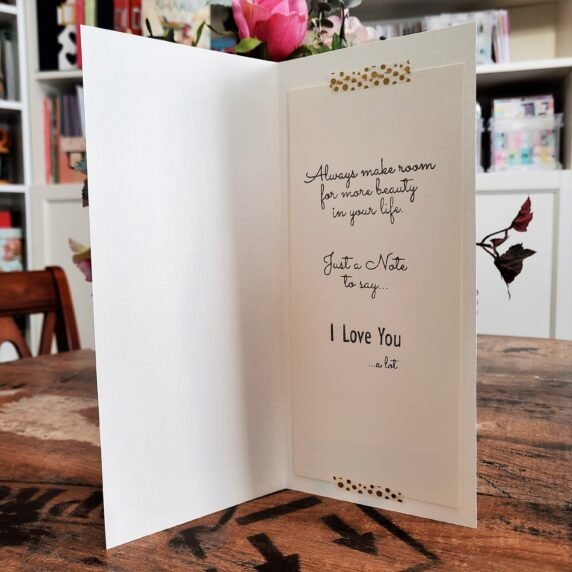 Always make room
for more beauty
in your life.
Just a Note
to say...
I Love You
...a lot